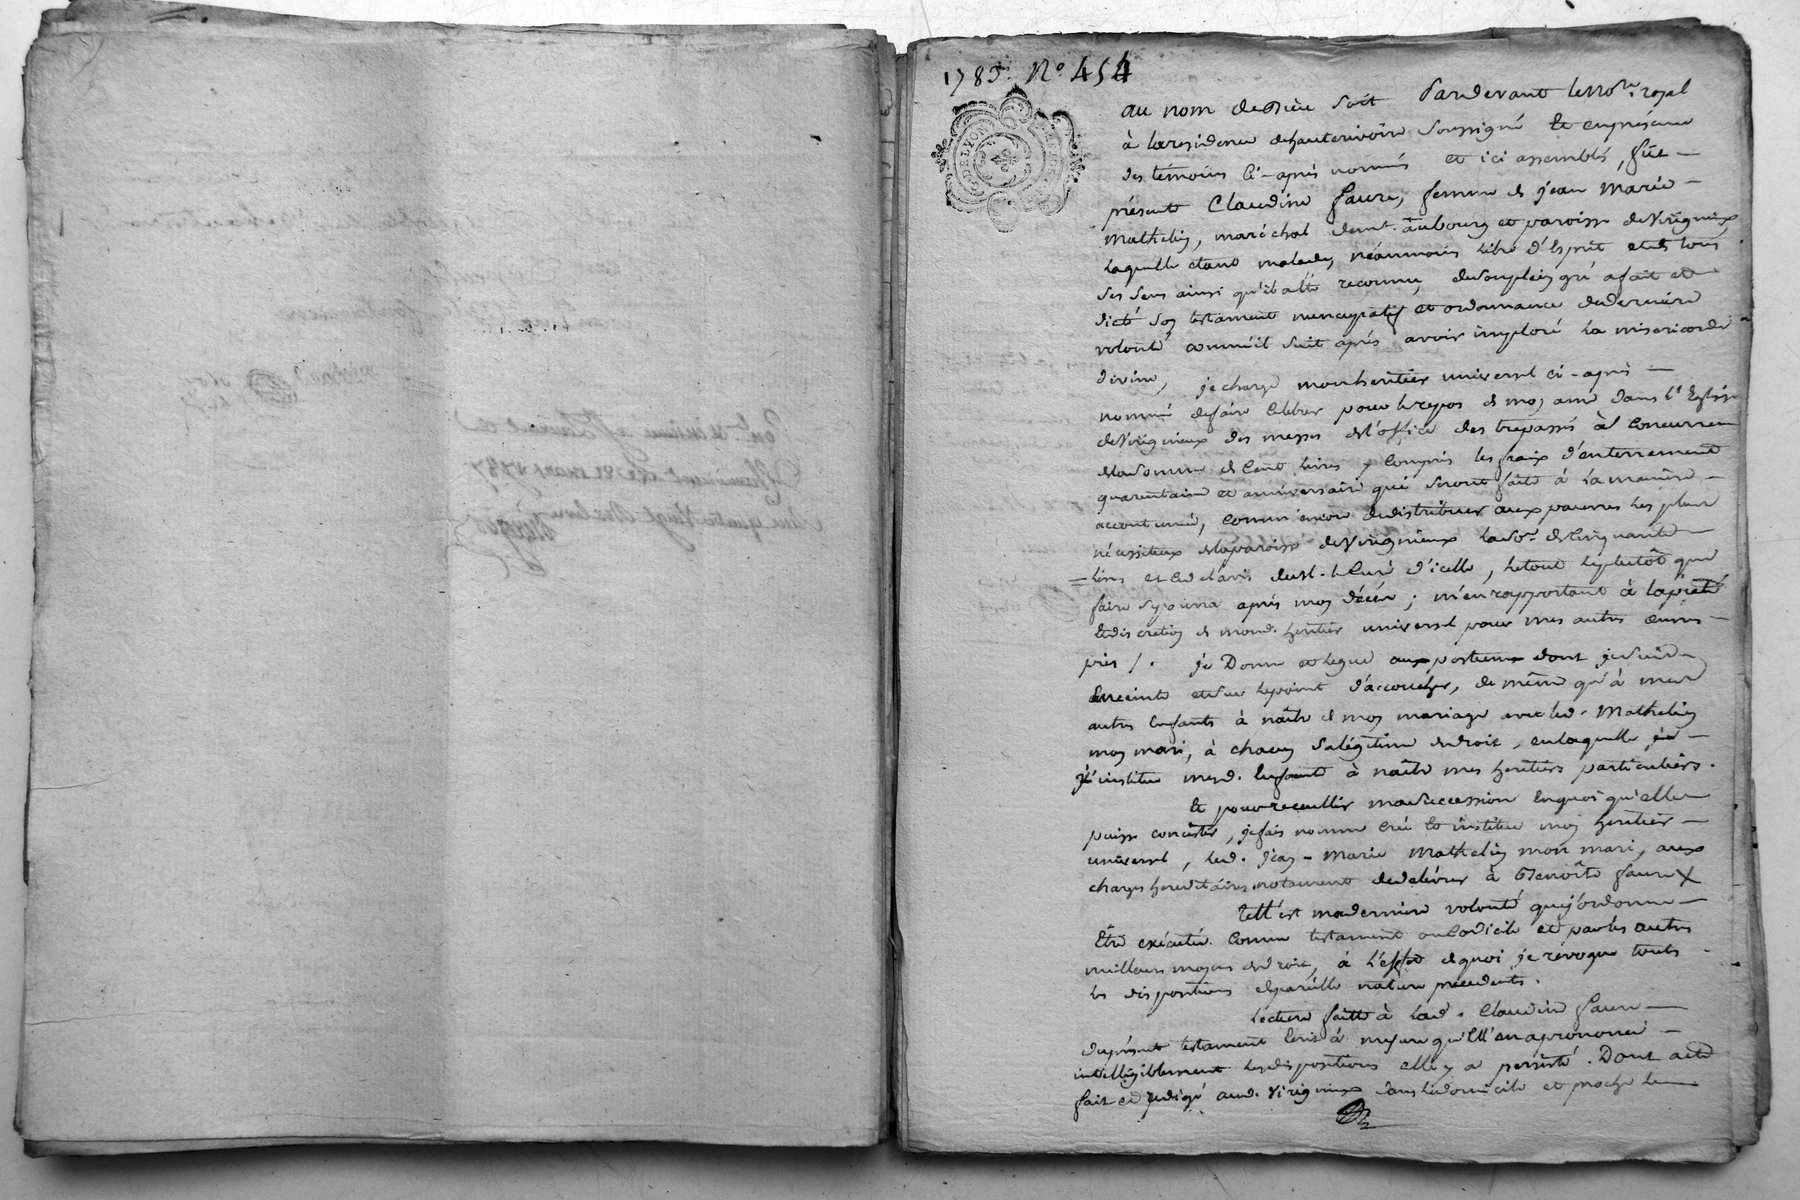 1785. N° 454
au nom de Dieu soit Pardevant le No.re royal
à la residence de hauterivoire soussigné Et en présence
des témoins Ci-après nommés et ici assemblés, fut
présente Claudine faure, femme de jean Marie
Mathelin, maréchal demt. au bourg et paroisse de Virigneux,
laquelle etant malade, néanmoins libre d'Esprit et de tous
ses sens ainsi qu'il a été reconnu, de son plein gré a fait et
dicté son testament nuncupatif et ordonnance de derniére
volonté comme il suit après avoir imploré la misericorde
divine, je charge mon heritier universel ci-après
nommé de faire Celebrer pour le repos de mon ame dans l'Eglise
de Virigneux des messes de l'office des trepassés à Concurrence
de la somme de Cent livres y Compris les fraix d'enterrement
quarentaine et anniversaire qui seront faits à la manière
accoutumée, Comm'encore de distribuer aux pauvres les plus
nécessiteux de la paroisse de Virigneux la so.e de Cinquante
livres et ce de l'avis de M. le Curé d'icelle, le tout le plutôt que
faire se pourra après mon décés; m'en rapportant à la piété
Et discretion de mond. heritier universel pour mes autres œuvres
pies /. je Donne et legue aux postume dont je suis
Enceinte et sur le point d'accoucher, de même qu'à mes
autres Enfants à naitre de mon mariage avec led. Mathelin
mon mari, à chacun sa légitime de droit, en laquelle je
j'institue mesd. Enfants à naitre mes heritiers particuliers.
Et pour recueillir ma succession En quoi qu'elle
puisse concister, je fais nomme Crée Et institue mon heritier
universel, led. Jean-Marie Mathelin mon mari, aux
charges hereditaires notament de delivrer à Benoite faure X
tell'est ma derniere volonté que j'ordonne
Être exécutée Comme testament ou Codicile et par les autres
meilleurs moyens de droit, à l'effet de quoi je revoque toutes
les dispositions de pareille nature precedents.
Lecture faitte à lad. Claudine faure
du présent testament Ecrit à mesure qu'Ell'en a prononcé
intelligiblement les dispositions elle y a persisté. Dont acte
fait et redigé aud. Virigneux dans le domicile et proche le